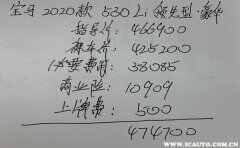 宝马 2020款 530Li 领先型·豪华
指导价: 466900
裸车价: 425200
必要费用: 38085
商业险: 10909
上牌费: 500
474700
www.5CAUTO.COM.CN